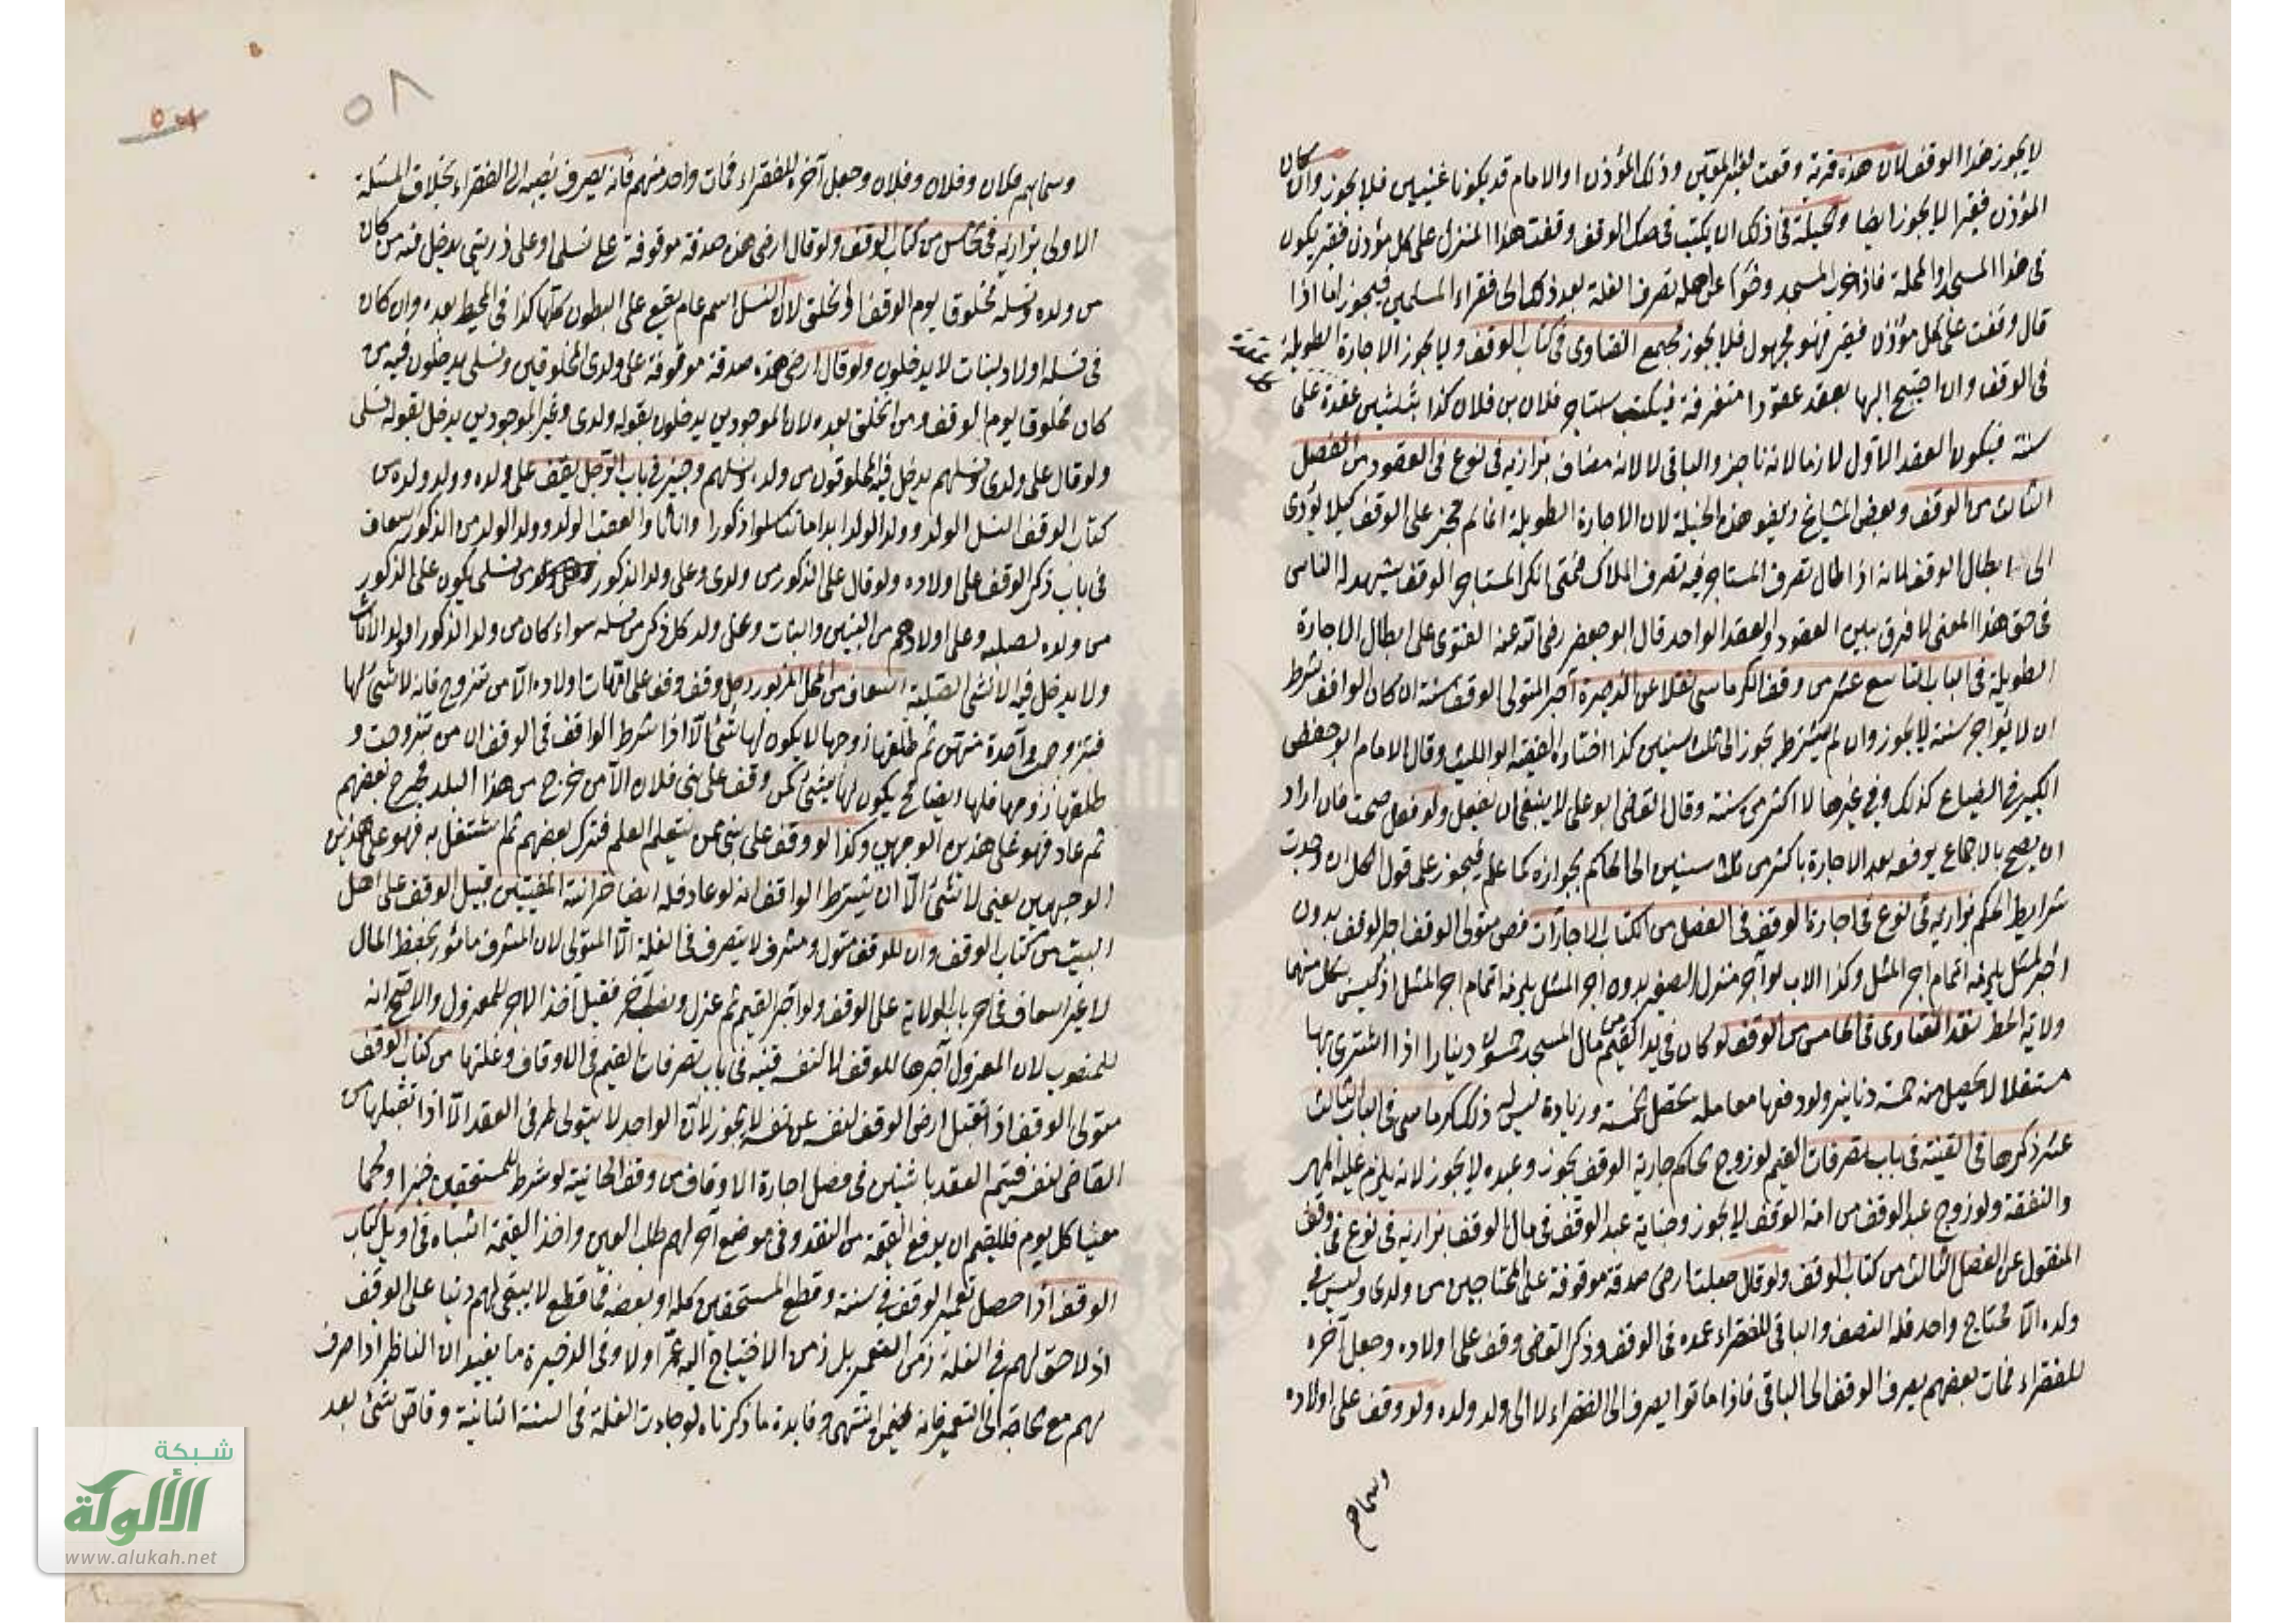 لا يجوز هذا الوقف لان هذه قربة وقعت لغير المعين وذلك المؤذن او الامام قد يكونا غنيين فلا يجوز وان كان
المؤذن فقيرا لا يجوز ايضا والحيلة في ذلك ان يكتب في صك الوقف وقفت هذا المنزل على كل مؤذن فقير يكون
في هذا المسجد او المحلة فاذا خرب المسجد وخوا عن اهله تصرف الغلة بعد ذلك الى فقراء المسلمين فيجوز اما اذا
قال وقفت على كل مؤذن فقير فهو مجهول فلا يجوز مجمع الفتاوى في كتاب الوقف ولا يجوز الاجارة الطويلة
في الوقف وان احتيج اليها يعقد عقودا متفرقة فيكتب استاجر فلان بن فلان كذا بثلثين عقدة على
سنة فيكون العقد الاول لازما لانه ناجز والباقي لا لانه مضاف بزازيه في نوع في العقود من الفصل
الثالث من الوقف وبعض المشايخ زيفو هذه الحيلة لان الاجارة الطويلة انما لم تجز على الوقف كيلا يؤدى
الى ابطال الوقف لانه اذا طال تصرف المستاجر فيه تصرف الملاك فمتى انكر المستاجر الوقف يشهد له الناس
في حق هذا المعنى لا فرق بين العقود والعقد الواحد قال ابو جعفر رضي الله عنه الفتوى على ابطال الاجارة
الطويلة في الباب التاسع عشر من وقف الكرماسى نقلا عن الذخيرة آجر المتولى الوقف سنة ان كان الواقف شرط
ان لا يؤاجر سنة لا يجوز وان لم يشترط يجوز الى ثلث سنين كذا اختاره الفقيه ابو الليث وقال الامام ابو حفص
الكبير في الضياع كذلك وفي غيرها لا اكثر من سنة وقال القاضى ابو على لا ينبغى ان يفعل ولو فعل صحت فان اراد
ان يصح بالاجماع يرفع بعد الاجارة باكثر من ثلث سنين الى الحاكم بجوازه كما علم فيجوز على قول الكل ان وجدت
شرايط الحكم بزازيه في نوع في اجارة الوقف في الفصل من الكتاب الاجارات فصى متولى الوقف اجر الوقف بدون
اجر المثل يلزمه اتمام اجر المثل وكذا الاب لو آجر منزل الصغير بدون اجر المثل يلزمه اتمام اجر المثل اذ ليس لكل منهما
ولاية الحط نقد الفتاوى في الخامس من الوقف لو كان في يد القيم من مال المسجد خمسون دينارا اذا اشترى بها
مستغلا لا يحصل منه خمسة دنانير ولو دفعها معاملة تحصل خمسة وزيادة ليس له ذلك كرماسى في الباب الثالث
عشر ذكرها في القنية في باب تصرفات القيم لو زوج الحاكم جارية الوقف يجوز وعبده لا يجوز لانه يلزم عليه المهر
والنفقة ولو زوج عبد الوقف من امة الوقف لا يجوز وجناية عبد الوقف في مال الوقف بزازيه في نوع في وقف
المنقول عن الفصل الثالث من كتاب الوقف ولو قال جعلت ارضى صدقة موقوفة على المحتاجين من ولدى وليس في
ولده الا محتاج واحد فله النصف والباقى للفقراء عمده في الوقف وذكر القاضى وقف على اولاده وجعل آخره
للفقراء فمات بعضهم يصرف الوقف الى الباقى فاذا ماتوا يصرف الى الفقراء لا الى ولد ولده ولو وقف على اولاده
وسماهم
٥٨
وسماهم فلان وفلان وفلان وجعل آخره للفقراء فمات واحد منهم فانه يصرف نصيبه الى الفقراء بخلاف المسئلة
الاولى بزازيه في الخامس من كتاب الوقف ولو قال ارضى هذه صدقة موقوفة على نسلى او على ذريتى يدخل فيه من كان
من ولده ونسله مخلوقا يوم الوقف او لم يخلق لان النسل اسم عام يقع على البطون كلها كذا في المحيط بعده وان كان
في نسله اولاد البنات لا يدخلون ولو قال ارضى هذه صدقة موقوفة على ولدى المخلوقين ونسلى يدخلون فيه من
كان مخلوقا يوم الوقف ومن لم يخلق بعده لان الموجودين يدخلون بقوله ولدى وغير الموجودين يدخل بقوله نسلى
ولو قال على ولدى ونسلهم يدخل فيه المخلوقون من ولده ونسلهم وجيز في باب الرجل يقف على ولده وولد ولده من
كتاب الوقف النسل الولد وولد الولد ابدا ما تناسلوا ذكورا واناثا والعقب الولد وولد الولد من الذكور اسعاف
في باب ذكر الوقف على اولاده ولو قال على الذكور من ولدى وعلى ولد الذكور من نسلى يكون على الذكور
من ولده لصلبه وعلى اولادهم من البنين والبنات وعلى ولد كل ذكر من نسله سواء كان من ولد الذكور او ولد الاناث
ولا يدخل فيه الانثى الصلبية اسعاف من المحل المزبور رجل وقف وقفا على امهات اولاده الا من تتزوج فانه لا شئ لها
فتزوجت واحدة منهن ثم طلقها زوجها لا يكون لها شئ الا اذا شرط الواقف في الوقف ان من تزوجت و
طلقها زوجها فلها ايضا يكون لها شئ كمن وقف على بنى فلان الا من خرج من هذا البلد فخرج بعضهم
ثم عاد فهو على هذين الوجهين وكذا لو وقف على بنى من يتعلم العلم فترك بعضهم ثم اشتغل به فهو على هذين
الوجهين يعنى لا شئ الا ان يشترط الواقف انه لو عاد فله ايضا خزانة المفتيين قبيل الوقف على اهل
البيت من كتاب الوقف وان للوقف متول ومشرف لا يتصرف في الغلة الا المتولى لان المشرف مأمور بحفظ المال
لا غير اسعاف في آخر باب الولاية على الوقف ولو آجر القيم ثم عزل ونصب آخر فقيل اخذ الاجر للمعزول والاصح انه
للمنصوب لان المعزول آجرها للوقف لا لنفسه قنيه في باب تصرفات القيم في الاوقاف وغلتها من كتاب الوقف
متولى الوقف اذا تقبل ارض الوقف لنفسه عن نفسه لا يجوز لان الواحد لا يتولى طرفى العقد الا اذا تقبلها من
القاضى لنفسه فيتم العقد باثنين في فصل اجارة الاوقاف من وقف الخانية لو شرط للمستحقين خبزا ولحما
معينا كل يوم فللقيم ان يدفع القيمة من النقد وفى موضع آخر لهم طلب العين واخذ القيمة اشباه في اويل كتاب
الوقف اذا حصل تعمير الوقف في سنة وقطع المستحقين كله او بعضه فما قطع لا يبقى لهم دينا على الوقف
اذ لا حق لهم في الغلة زمن التعمير بل زمن الاحتياج اليه عمر اولا وفى الذخيرة ما يفيد ان الناظر اذا صرف
لهم مع الحاجة الى التعمير فانه يضمن انتهى وفايدة ما ذكرناه لو جاءت الغلة في السنة الثانية وفاض شئ بعد
شبكة
الألوكة
www.alukah.net